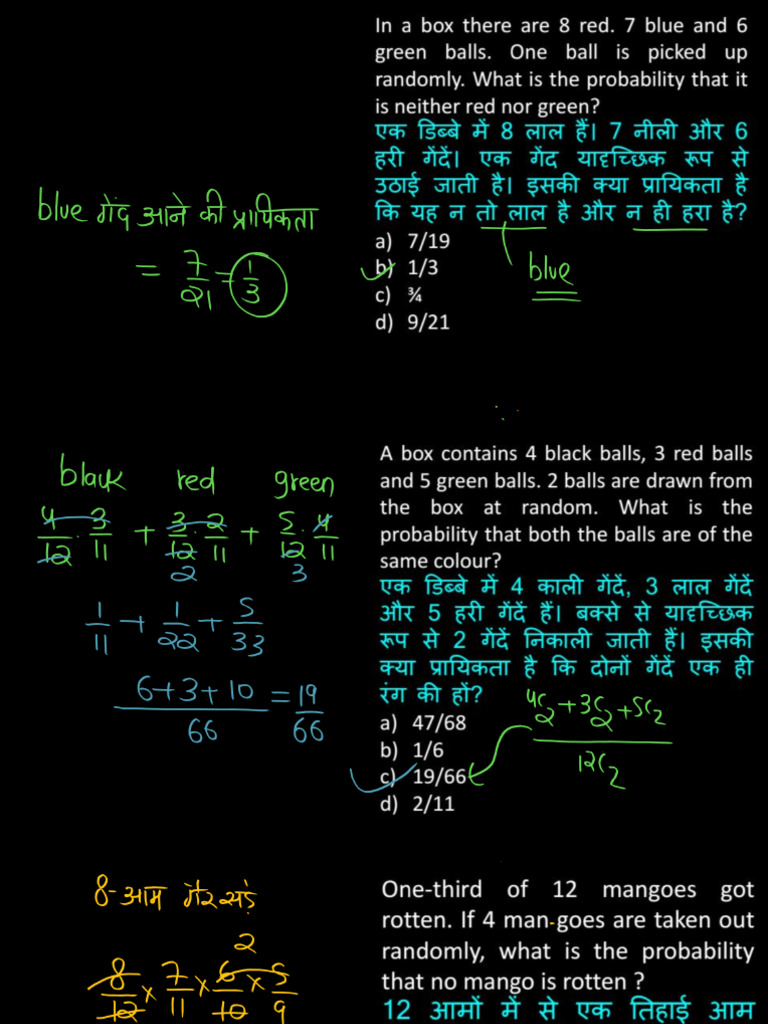 In a box there are 8 red. 7 blue and 6
green balls. One ball is picked up
randomly. What is the probability that it
is neither red nor green?
एक डिब्बे में 8 लाल हैं। 7 नीली और 6
हरी गेंदें। एक गेंद यादृच्छिक रूप से
उठाई जाती है। इसकी क्या प्रायिकता है
कि यह न तो लाल है और न ही हरा है?
a) 7/19
b) 1/3
c) ¾
d) 9/21
blue
blue गेंद आने की प्रायिकता
= 7/21 = 1/3
A box contains 4 black balls, 3 red balls
and 5 green balls. 2 balls are drawn from
the box at random. What is the
probability that both the balls are of the
same colour?
एक डिब्बे में 4 काली गेंदें, 3 लाल गेंदें
और 5 हरी गेंदें हैं। बक्से से यादृच्छिक
रूप से 2 गेंदें निकाली जाती हैं। इसकी
क्या प्रायिकता है कि दोनों गेंदें एक ही
रंग की हों?
a) 47/68
b) 1/6
c) 19/66
d) 2/11
4C2+3C2+5C2
12C2
black red green
4/12 · 3/11 + 3/12 · 2/11 + 5/12 · 4/11
2 3
1/11 + 1/22 + 5/33
6+3+10/66 = 19/66
One-third of 12 mangoes got
rotten. If 4 man-goes are taken out
randomly, what is the probability
that no mango is rotten ?
12 आमों में से एक तिहाई आम
8-आम गैर सड़े
2
8/12 × 7/11 × 6/10 × 5/9